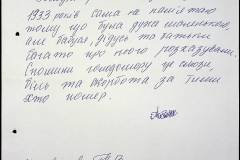 1933 років сама не пам'ятаю
тому що була дуже маленькою,
але бабуся, дідусь та батьки
багато про нього розказували.
Спомини голодомору це сльози,
біль та скорбота за тими
хто помер.